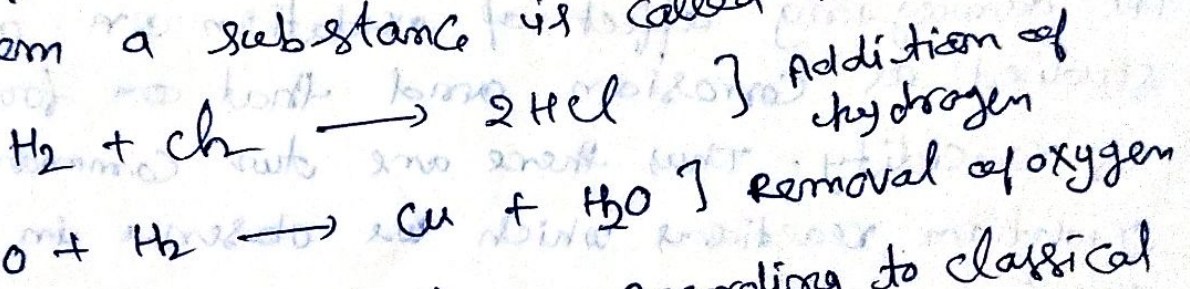 a substance is called
H2 + Cl2 → 2HCl ] Addition of
hydrogen
O + H2 → Cu + H2O ] Removal of oxygen
to classical